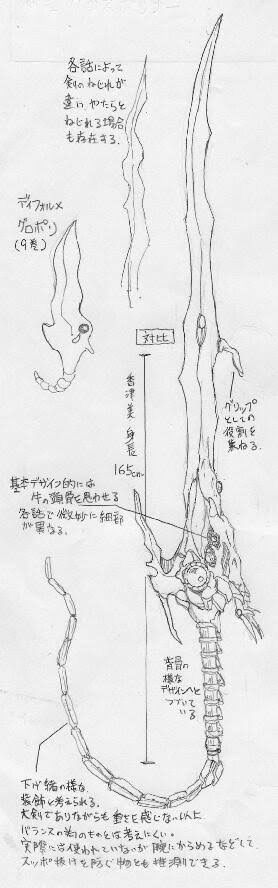 各話によって
剣のねじれが
違い、やたらと
ねじれる場合
も存在する。
ディフォルメ
グロポリ
(9巻)
対比
香津美 身長
165cm
グリップ
としての
役割を
兼ねる。
基本デザイン的には
牛の頭骨を思わせる
各話で微妙に細部
が異なる。
背骨の
様な
デザインへと
つづいて
いる
下げ緒の様な
装飾と考えられる。
大剣でありながらも重さを感じない以上
バランスの為のものとは考えにくい。
実際には使われていないが腕にからめるなどして
スッポ抜けを防ぐ物とも推測できる。